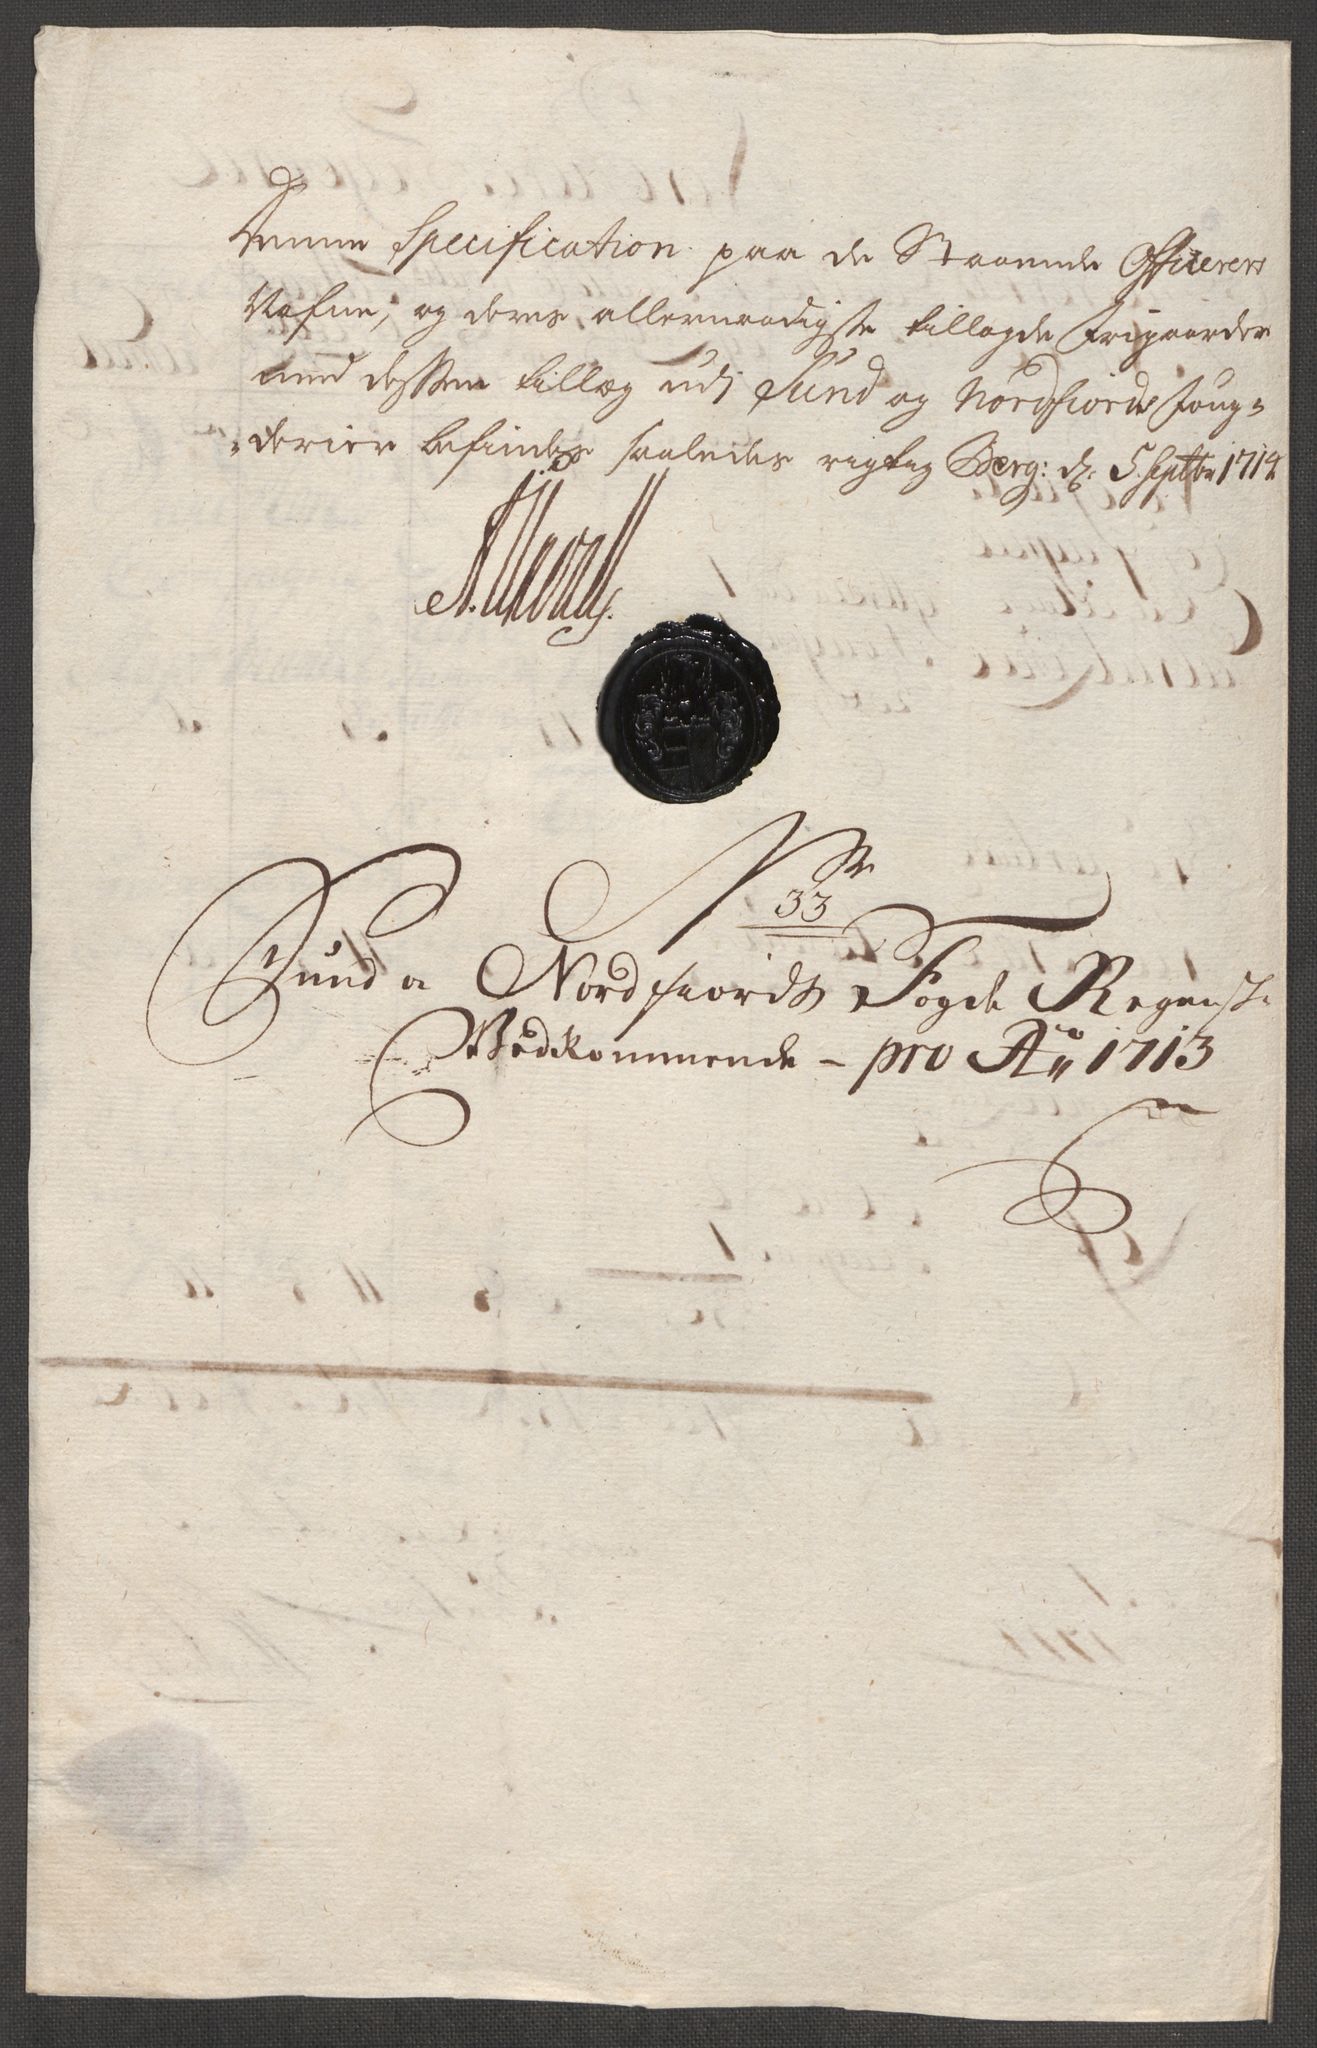 Denne Specification paa de Staaende Officerers
Nafne, og deres allernaadigste tillagde Frigaarder
med dessen tillæg udj Sund og Nordfiords Foug=
=derier befindes saaledes rigtig Berg: d: 5. Septbr 1714
No
33
Sund og Nordfiords Fogde Regensk:
Vedkommende - pro Ao 1713